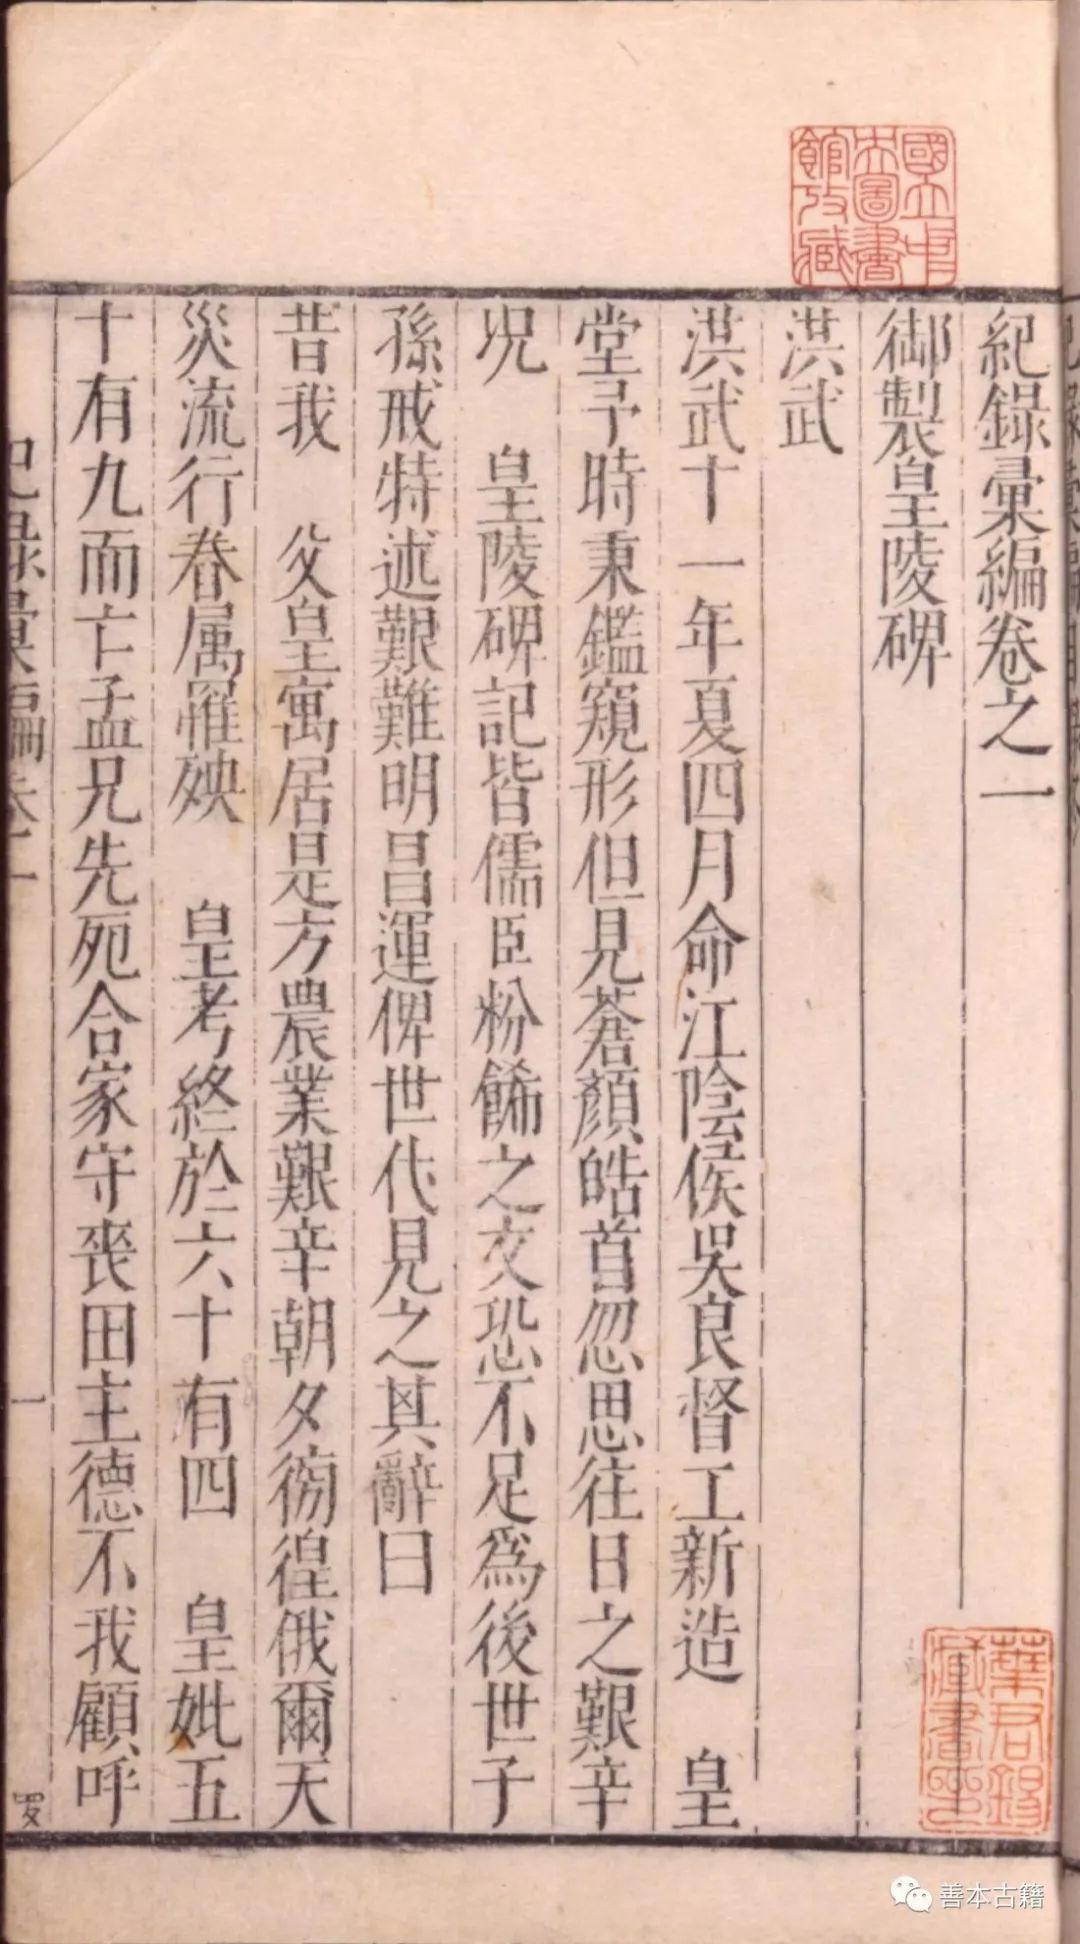 國立中
央圖書
館攷藏
紀錄彙編卷之一
御製皇陵碑
洪武
洪武十一年夏四月命江陰侯吳良督工新造　皇
堂予時秉鑑窺形但見蒼顏皓首忽思往日之艱辛
况　皇陵碑記皆儒臣粉餙之文恐不足為後世子
孫戒特述艱難明昌運俾世代見之其辭曰
昔我　父皇寓居是方農業艱辛朝夕徬徨俄爾天
災流行眷属罹殃　皇考終於六十有四　皇妣五
十有九而亡孟兄先死合家守丧田主德不我顧呼
紀錄彙編卷一
一
葉君錫
藏書印
善本古籍